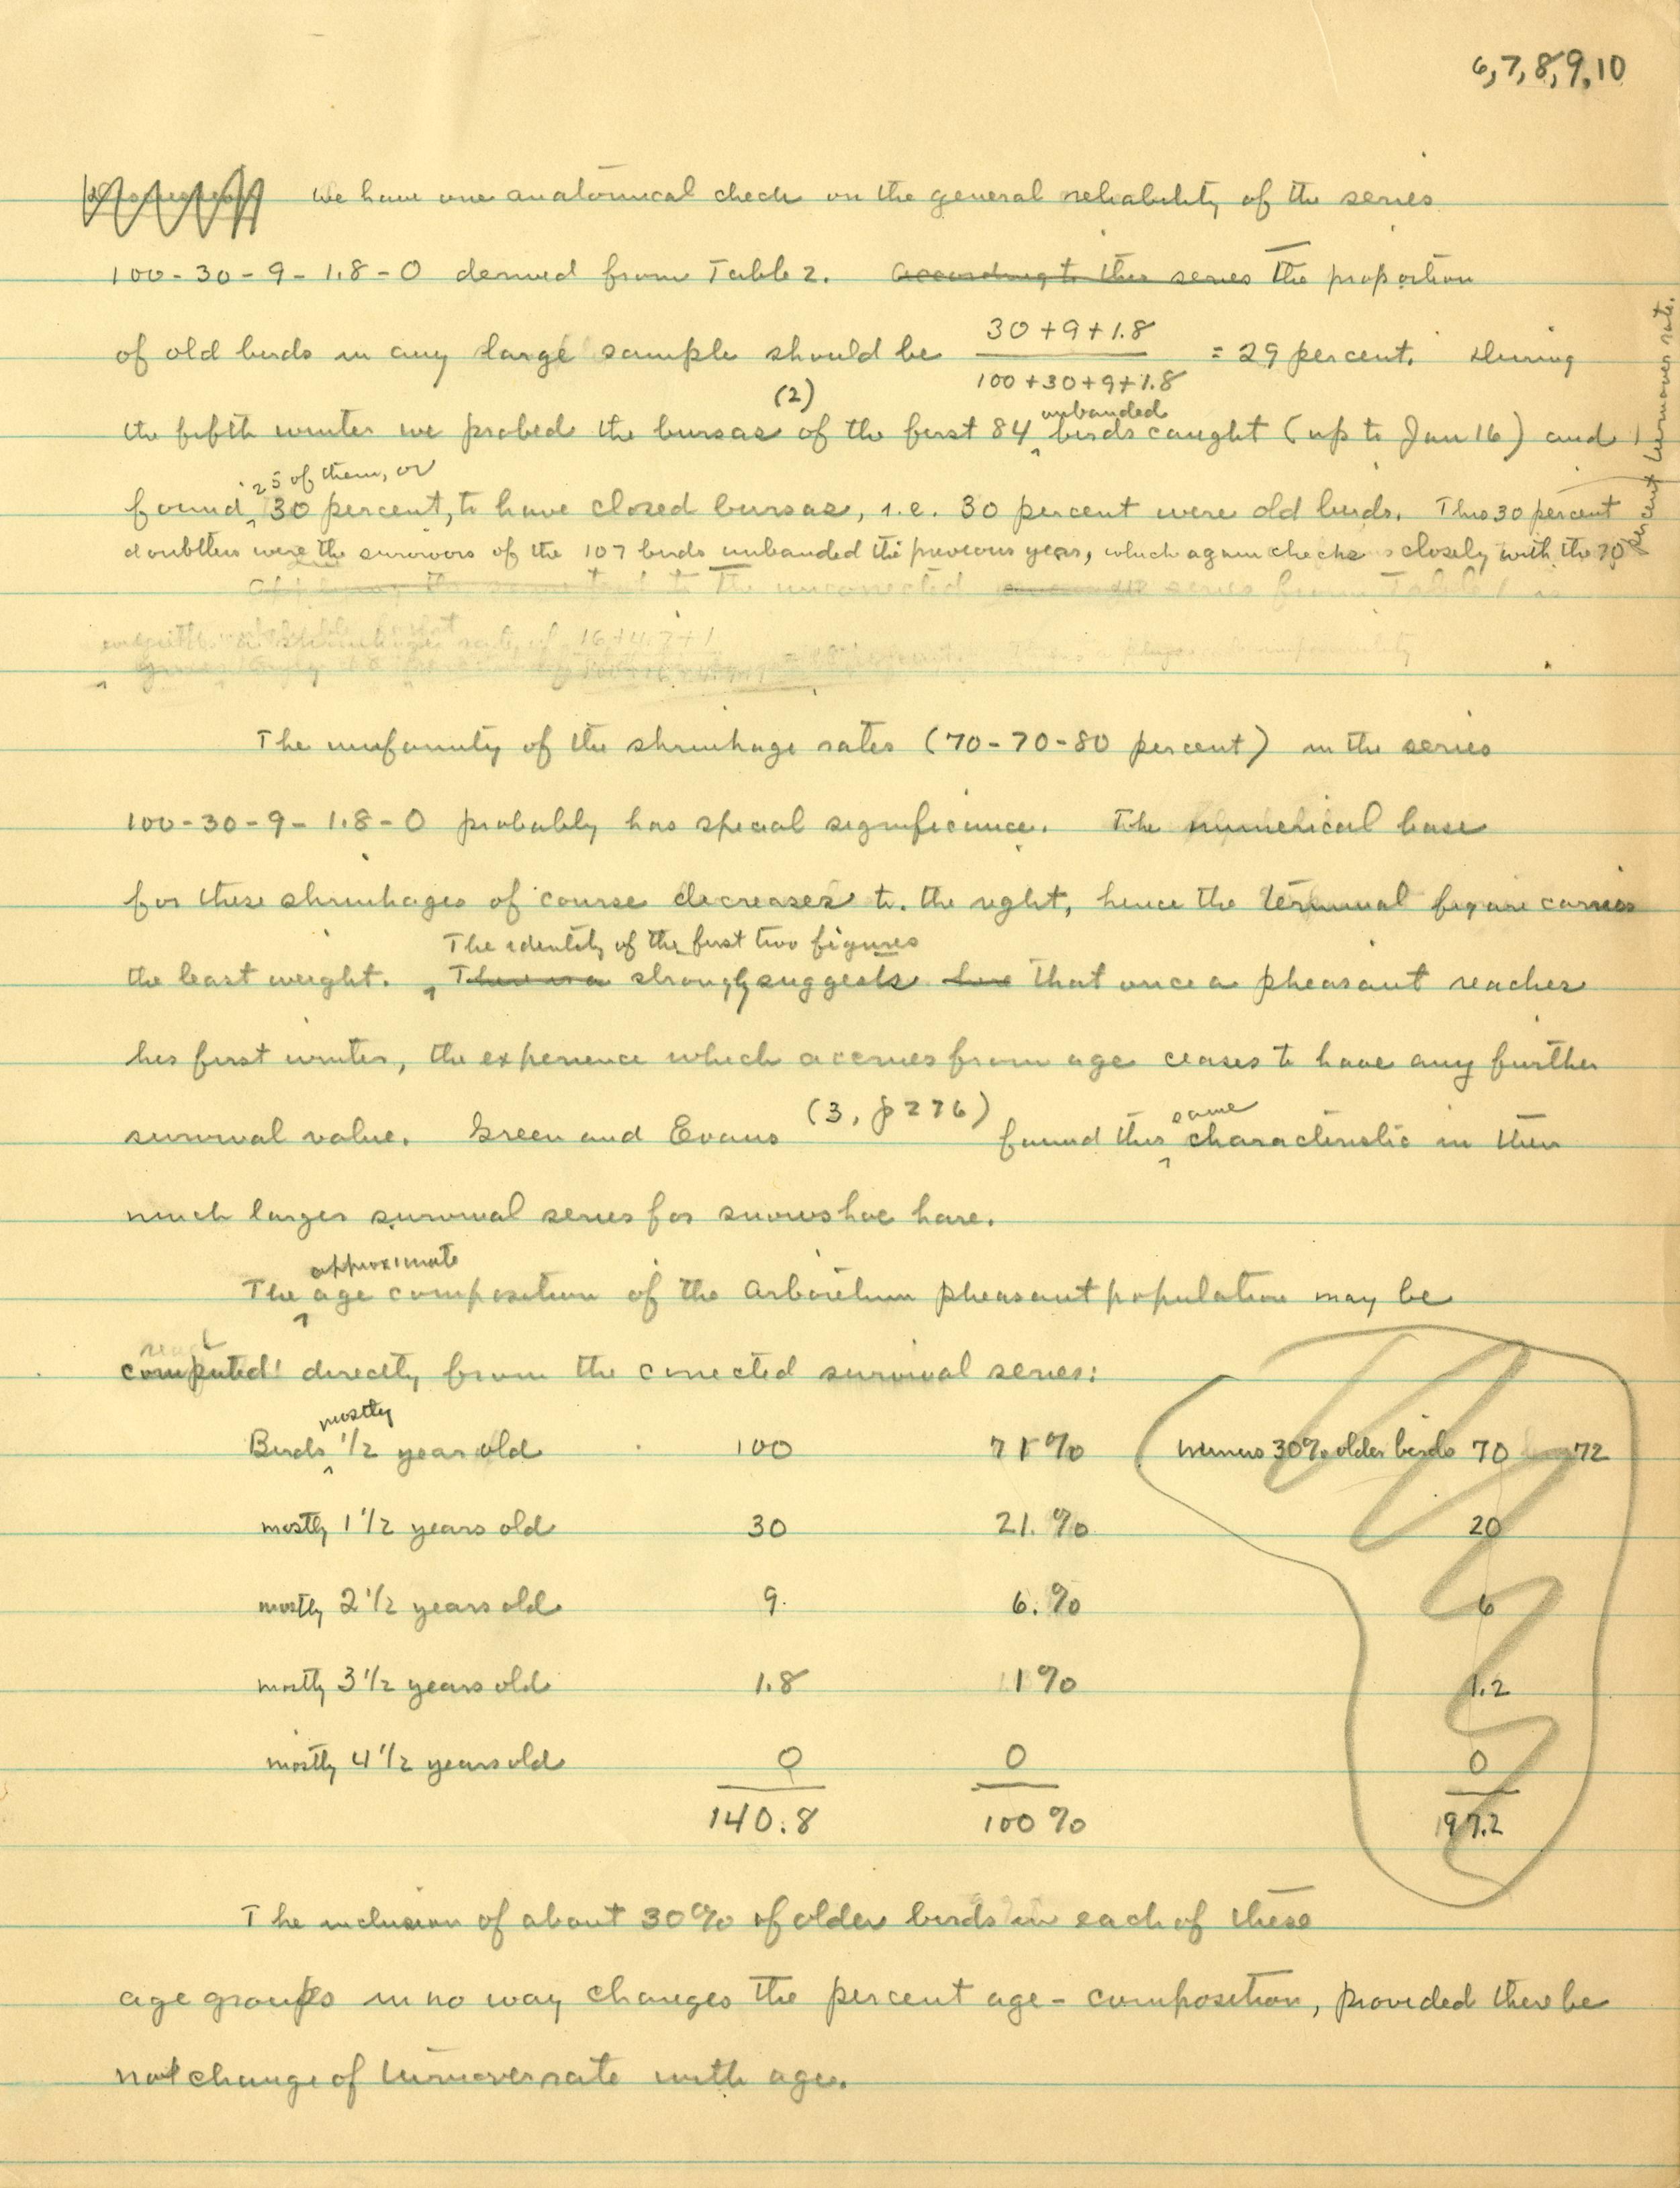 6, 7, 8, 9, 10
We have one anatomical check on the general reliability of the series
100-30-9-1.8-0 derived from Table 2. According to this series The proportion
of old birds in any large sample should be 30+9+1.8 / 100+30+9+1.8 = 29 percent. During
the fifth winter we probed the bursas (2) of the first 84 unbanded birds caught (up to Jan 16) and
found 25 of them, or 30 percent, to have closed bursas, i.e. 30 percent were old birds. This 30 percent
doubtless were the survivors of the 107 birds unbanded the previous year, which again checks closely with the 70
percent turnover rate.
to the uncorrected series from Table 1
16+4.7+1
The uniformity of the shrinkage rates (70-70-80 percent) in the series
100-30-9-1.8-0 probably has special significance. The numerical base
for these shrinkages of course decreases to the right, hence the terminal figure carries
The identity of the first two figures
the least weight. There is a strongly suggests that once a pheasant reaches
his first winter, the experience which accrues from age ceases to have any further
survival value. Green and Evans (3, p 276) found this same characteristic in their
much larger survival series for snowshoe hare.
The approximate age composition of the Arboretum pheasant population may be
read
computed directly from the corrected survival series:
Birds mostly 1/2 year old 100 71% minus 30% older birds 70 72
mostly 1 1/2 years old 30 21.% 20
mostly 2 1/2 years old 9. 6.% 6
mostly 3 1/2 years old 1.8 1% 1.2
mostly 4 1/2 years old 0 0 0
140.8 100% 197.2
The inclusion of about 30% of older birds in each of these
age groups in no way changes the percent age-composition, provided there be
not change of turnover rate with age.